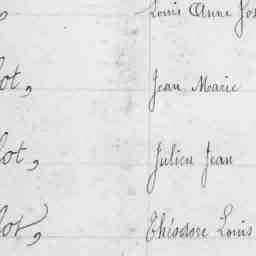 Louis Anne
lot, Jean Marie
lot, Julien Jean
lot, Théodore Louis